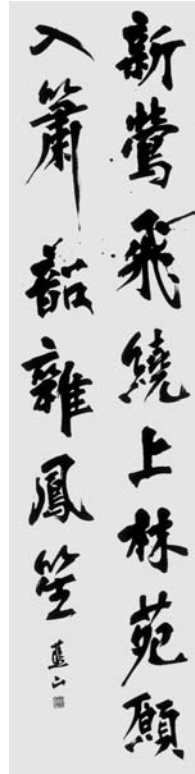 新鶯飛繞上林苑願
入簫韶雜鳳笙
藍山